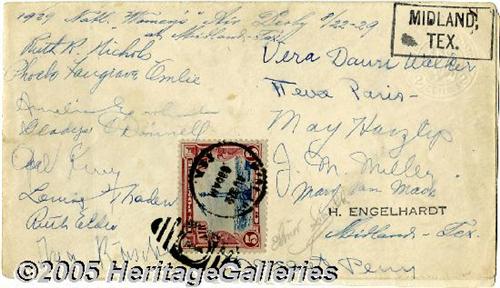 1929 Nat'l. Women's Air Derby 8/22-29
at Midland-Tex
MIDLAND,
TEX.
Ruth R. Nichols
Phoebe Fairgrave Omlie
Amelia Earhart
Gladys O'Donnell
Opal Kunz
Louise Thaden
Ruth Elder
Vera Dawn Walker
Neva Paris-
May Haizlip
J. M. Miller
Mary Von Mach
H. ENGELHARDT
Midland-Tex.
Perry
5
© 2005 HeritageGalleries.com